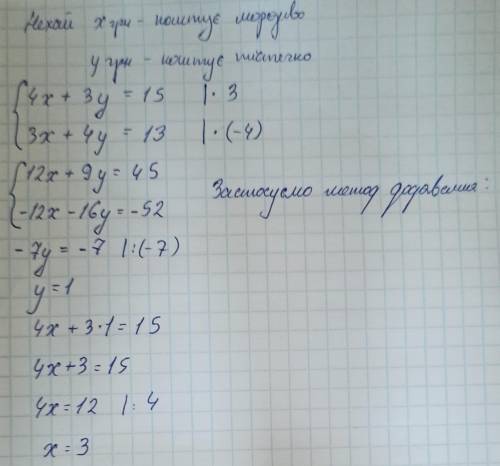 Нехай x грн - коштує морозиво
y грн - коштує тістечко
4x + 3y = 15 |· 3
3x + 4y = 13 |· (-4)
12x + 9y = 45
-12x - 16y = -52
Застосуємо метод додавання:
- 7y = - 7 |:(-7)
y = 1
4x + 3·1 = 15
4x + 3 = 15
4x = 12 |: 4
x = 3